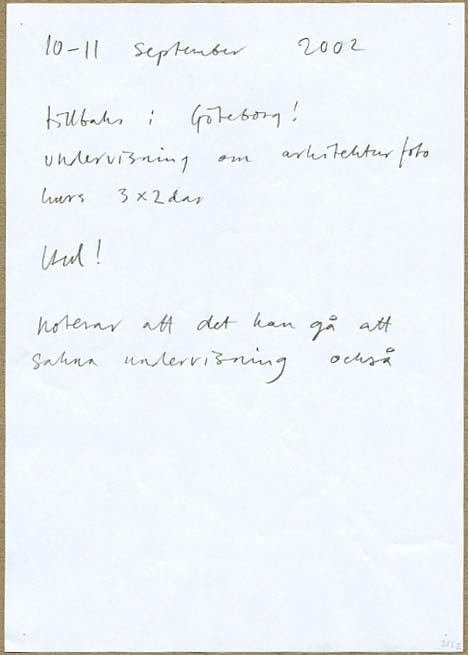 10-11 september 2002
tillbaks i Göteborg!
undervisning om arkitekturfoto
kurs 3x2dar
Kul!
noterar att det kan gå att
sakna undervisning också